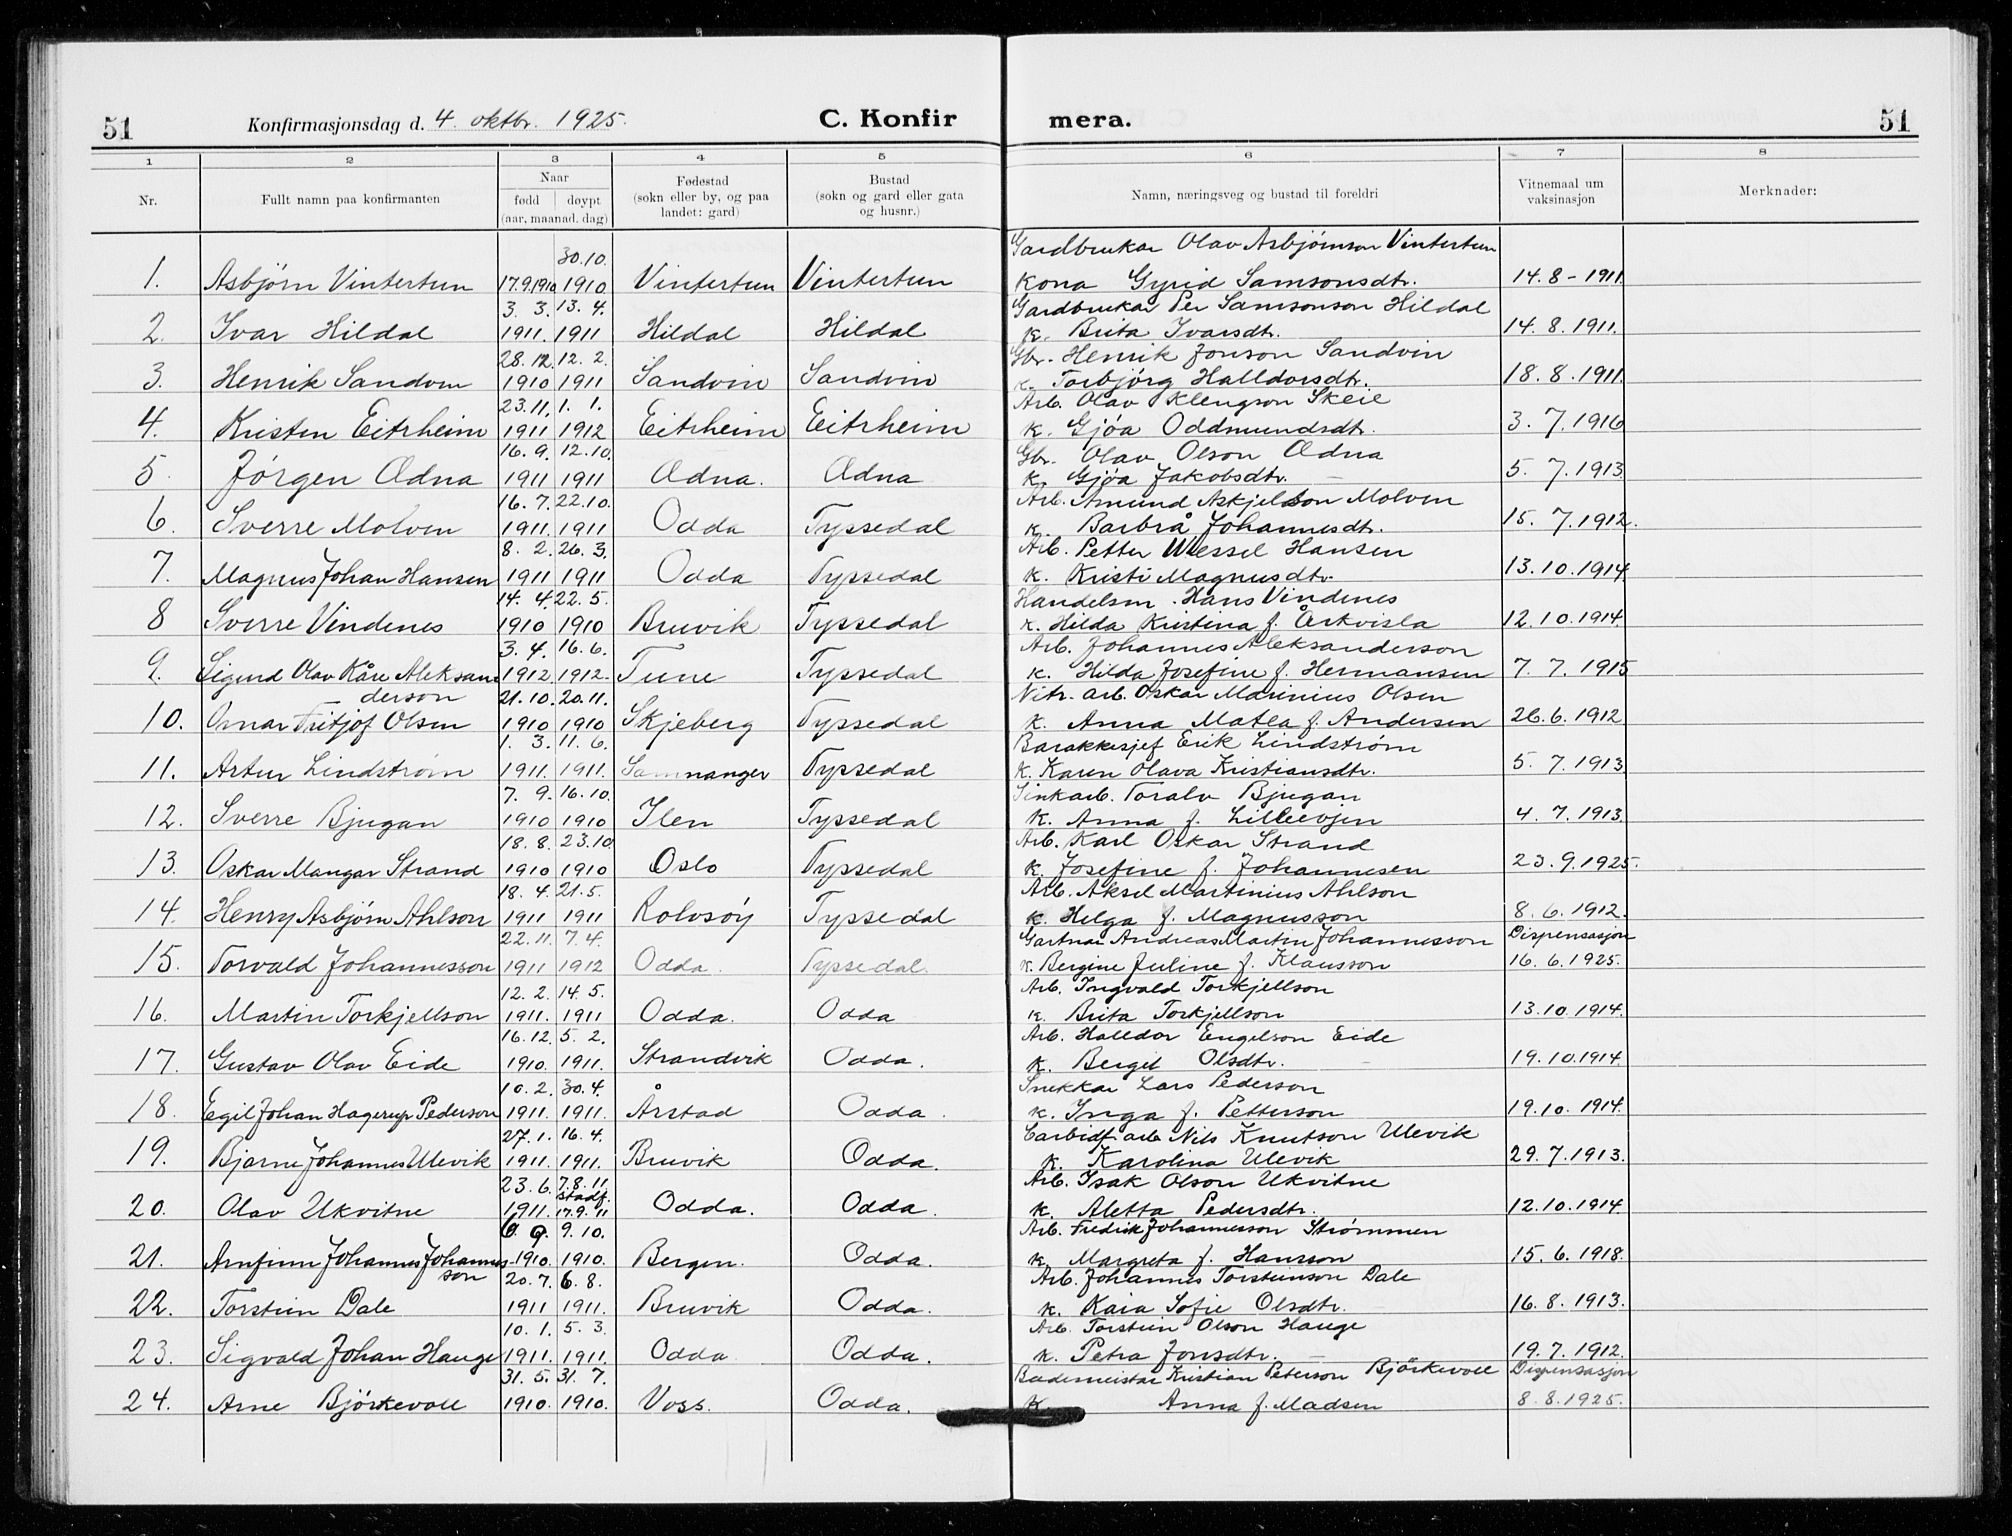 51 Konfirmasjonsdag d. 4. oktbr. 1925. C. Konfirmera. 51
1 2 3 4 5 6 7 8
Nr. Fullt namn paa konfirmanten Naar fødd døypt (aar, maanad. dag) Fødestad (sokn eller by, og paa landet: gard) Bustad (sokn og gard eller gata og husnr.) Namn, næringsveg og bustad til foreldri Vitnemaal um vaksinasjon Merknader:
30.10. Gardbrukar Olav Asbjørnson Vintertun
1. Asbjørn Vintertun 17.9.1910 1910 Vintertun Vintertun Kona Gyrid Samsonsdtr. 14.8-1911
3. 3. 13. 4. Gardbrukar Per Samsonson Hildal
2. Ivar Hildal 1911. 1911 Hildal Hildal k. Brita Ivarsdtr. 14.8.1911.
28.12. 12. 2. Gbr. Henrik Jonson Sandvin
3. Henrik Sandvin 1910 1911 Sandvin Sandvin k. Torbjørg Halldorsdtr. 18.8.1911.
23.11. 1. 1. Arb. Olav Klengson Skeie
4. Kristen Eitrheim 1911 1912 Eitrheim Eitrheim k. Gjøa Oddmundsdtr. 3.7.1916
16. 9. 12.10. Gbr. Olav Olson Ædna
5. Jørgen Ædna 1911 1911 Ædna. Ædna k. Gjøa Jakobsdtr. 5. 7.1913
16. 7. 22.10. Arb. Amund Askjelson Molven
6. Sverre Molven 1911. 1911 Odda Tyssedal k. Barbrå Johannesdtr. 15. 7.1912.
8. 2. 26. 3. Arb. Petter Wessel Hansen
7. Magnus Johan Hansen 1911 1911 Odda Tyssedal k. Kristi Magnusdtr. 13.10.1914
14. 4. 22. 5. Handelsm. Hans Vindenes
8 Sverre Vindenes 1910 1910 Bruvik Tyssedal k. Hilda Kristina f. Årkvisla 12.10.1914.
3. 4. 16. 6. Arb. Johannes Aleksanderson
9. Sigurd Olav Kåre Aleksan 1912 1912. Tune Tyssedal k. Hilda Josefine f. Hermansen 7. 7. 1915
derson 21.10. 20.11. Nitr. arb. Oskar Marinius Olsen
10. Ornar Fritjof Olsen 1910 1910 Skjeberg Tyssedal k. Anna Matea f. Andersen 26.6.1912
1. 3. 11. 6. Barakkesjef Erik Lindstrøm
11. Artur Lindstrøm 1911. 1911. Samnanger Tyssedal k. Karen Olava Kristiansdtr. 5. 7.1913
7. 9. 16.10. Sinkarb. Toralv Bjugan
12. Sverre Bjugan 1910 1910 Ilen Tyssedal k. Anna f. Lilleevjen 4. 7.1913.
18. 8. 23.10 Arb. Karl Oskar Strand
13. Oskar Mangar Strand 1910 1910 Oslo Tyssedal k. Josefine f. Johannesen 23.9.1925.
18. 4. 21.5. Arb. Aksel Martinius Ahlson
14. Henry Asbjørn Ahlson 1911 1911 Rolvsøy Tyssedal k. Helga f. Magnusson 8.6.1912.
22.11. 7.4. Gartnar Andreas Martin Johannesson Dispensasjon
15. Torvald Johannesson 1911 1912 Odda. Tyssedal. k. Bergine Juline f. Klausson 16.6.1925.
12. 2. 14. 5. Arb. Ingvald Torkjellson
16. Martin Torkjellson 1911. 1911 Odda. Odda k. Brita Torkjellson 13.10.1914.
16.12. 5. 2. Arb. Halldor Engelson Eide
17. Gustav Olav Eide 1910. 1911. Strandvik Odda. k. Bergit Olsdtr. 19.10.1914.
10. 2. 30.4. Snekkar Lars Pederson
18. Egil Johan Hagerup Pederson 1911. 1911. Årstad Odda. k. Inga f. Petterson 19.10.1914.
27.1. 16.4. Carbidf. arb Nils Knutson Ulevik
19. Bjarne Johannes Ulevik 1911. 1911. Bruvik Odda. k. Karolina Ulevik 29.7.1913.
23.6. 7.8.11. stadf. Arb. Isak Olson Ukvitne
20. Olav Ukvitne 1911. 17.9.11 Odda. Odda. k. Aletta Pedersdtr. 12.10.1914.
6. 9. 9.10. Arb. Fredrik Johannesson Strømmen
21. Arnfinn Johannes Johannes 1910. 1910. Bergen. Odda. k. Margreta f. Hansson 15.6.1918.
son 20. 7. 6. 8. Arb. Johannes Torsteinson Dale
22. Torstein Dale 1911 1911. Bruvik Odda. k. Kaia Sofie Olsdtr. 16.8.1913.
10. 1. 5. 3. Arb. Torstein Olson Hauge
23. Sigvald Johan Hauge 1911. 1911. Odda Odda. k. Petra Jonsdtr. 19.7.1912.
31. 5. 31. 7. Bademeistar Kristian Peterson Bjørkevoll Dispensasjon
24. Arne Bjørkevoll 1910. 1910. Voss. Odda. k Anna f. Madsen 8.8.1925.